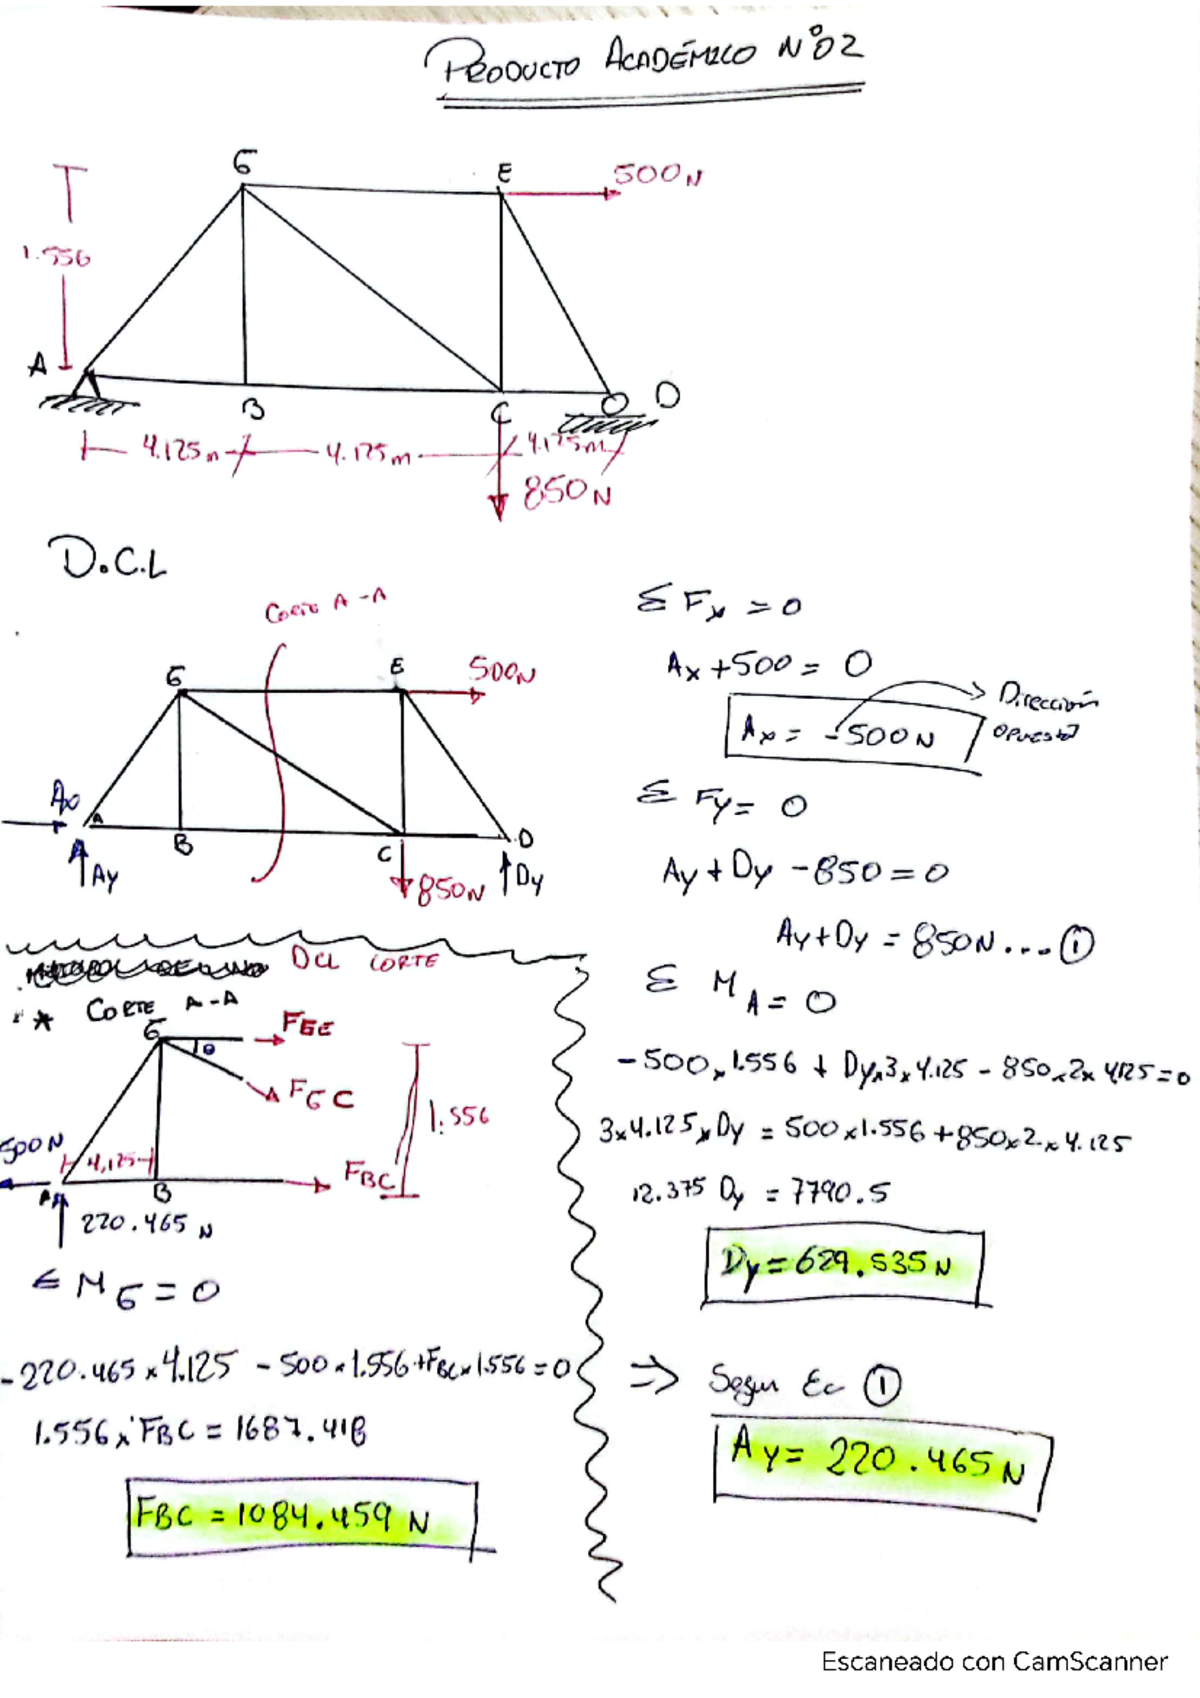 PRODUCTO ACADÉMICO N°02
G
E
500N
1.556
A
B
C
D
4.125m
4.125m
4.125m
850N
D.C.L
Corte A-A
G
E
500N
A
Ay
B
C
850N
D
Dy
Σ Fx = 0
Ax + 500 = 0
Ax = -500N
Dirección
opuesta
Σ Fy = 0
Ay + Dy - 850 = 0
Ay + Dy = 850N ... ①
Σ MA = 0
-500 x 1.556 + Dy x 3 x 4.125 - 850 x 2 x 4.125 = 0
3 x 4.125 x Dy = 500 x 1.556 + 850 x 2 x 4.125
12.375 Dy = 7790.5
Dy = 629.535N
⇒ Segun Ec ①
Ay = 220.465N
DCL CORTE
* CORTE A-A
G
FGE
θ
FGC
1.556
500N
4,125
A
B
FBC
220.465 N
Σ MG = 0
-220.465 x 4.125 - 500 x 1.556 + FBC x 1.556 = 0
1.556 x FBC = 1687.418
FBC = 1084.459 N
Escaneado con CamScanner